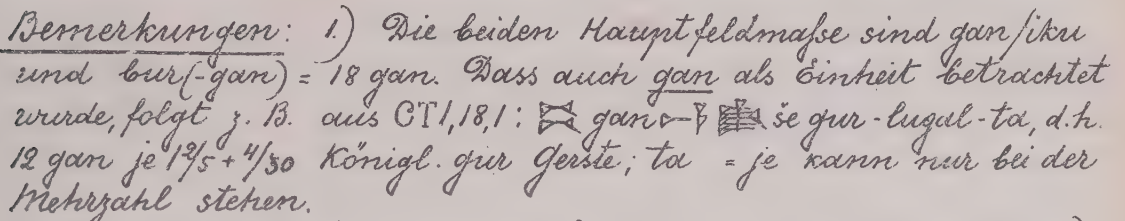 Bemerkungen: 1.) Die beiden Hauptfeldmaße sind gan/iku
und bur(-gan) = 18 gan. Dass auch gan als Einheit betrachtet
wurde, folgt z. B. aus CT 1, 18, 1: gan še gur-lugal-ta, d.h.
12 gan je 1 2/5 + 4/30 Königl. gur Gerste; ta = je kann nur bei der
Mehrzahl stehen.